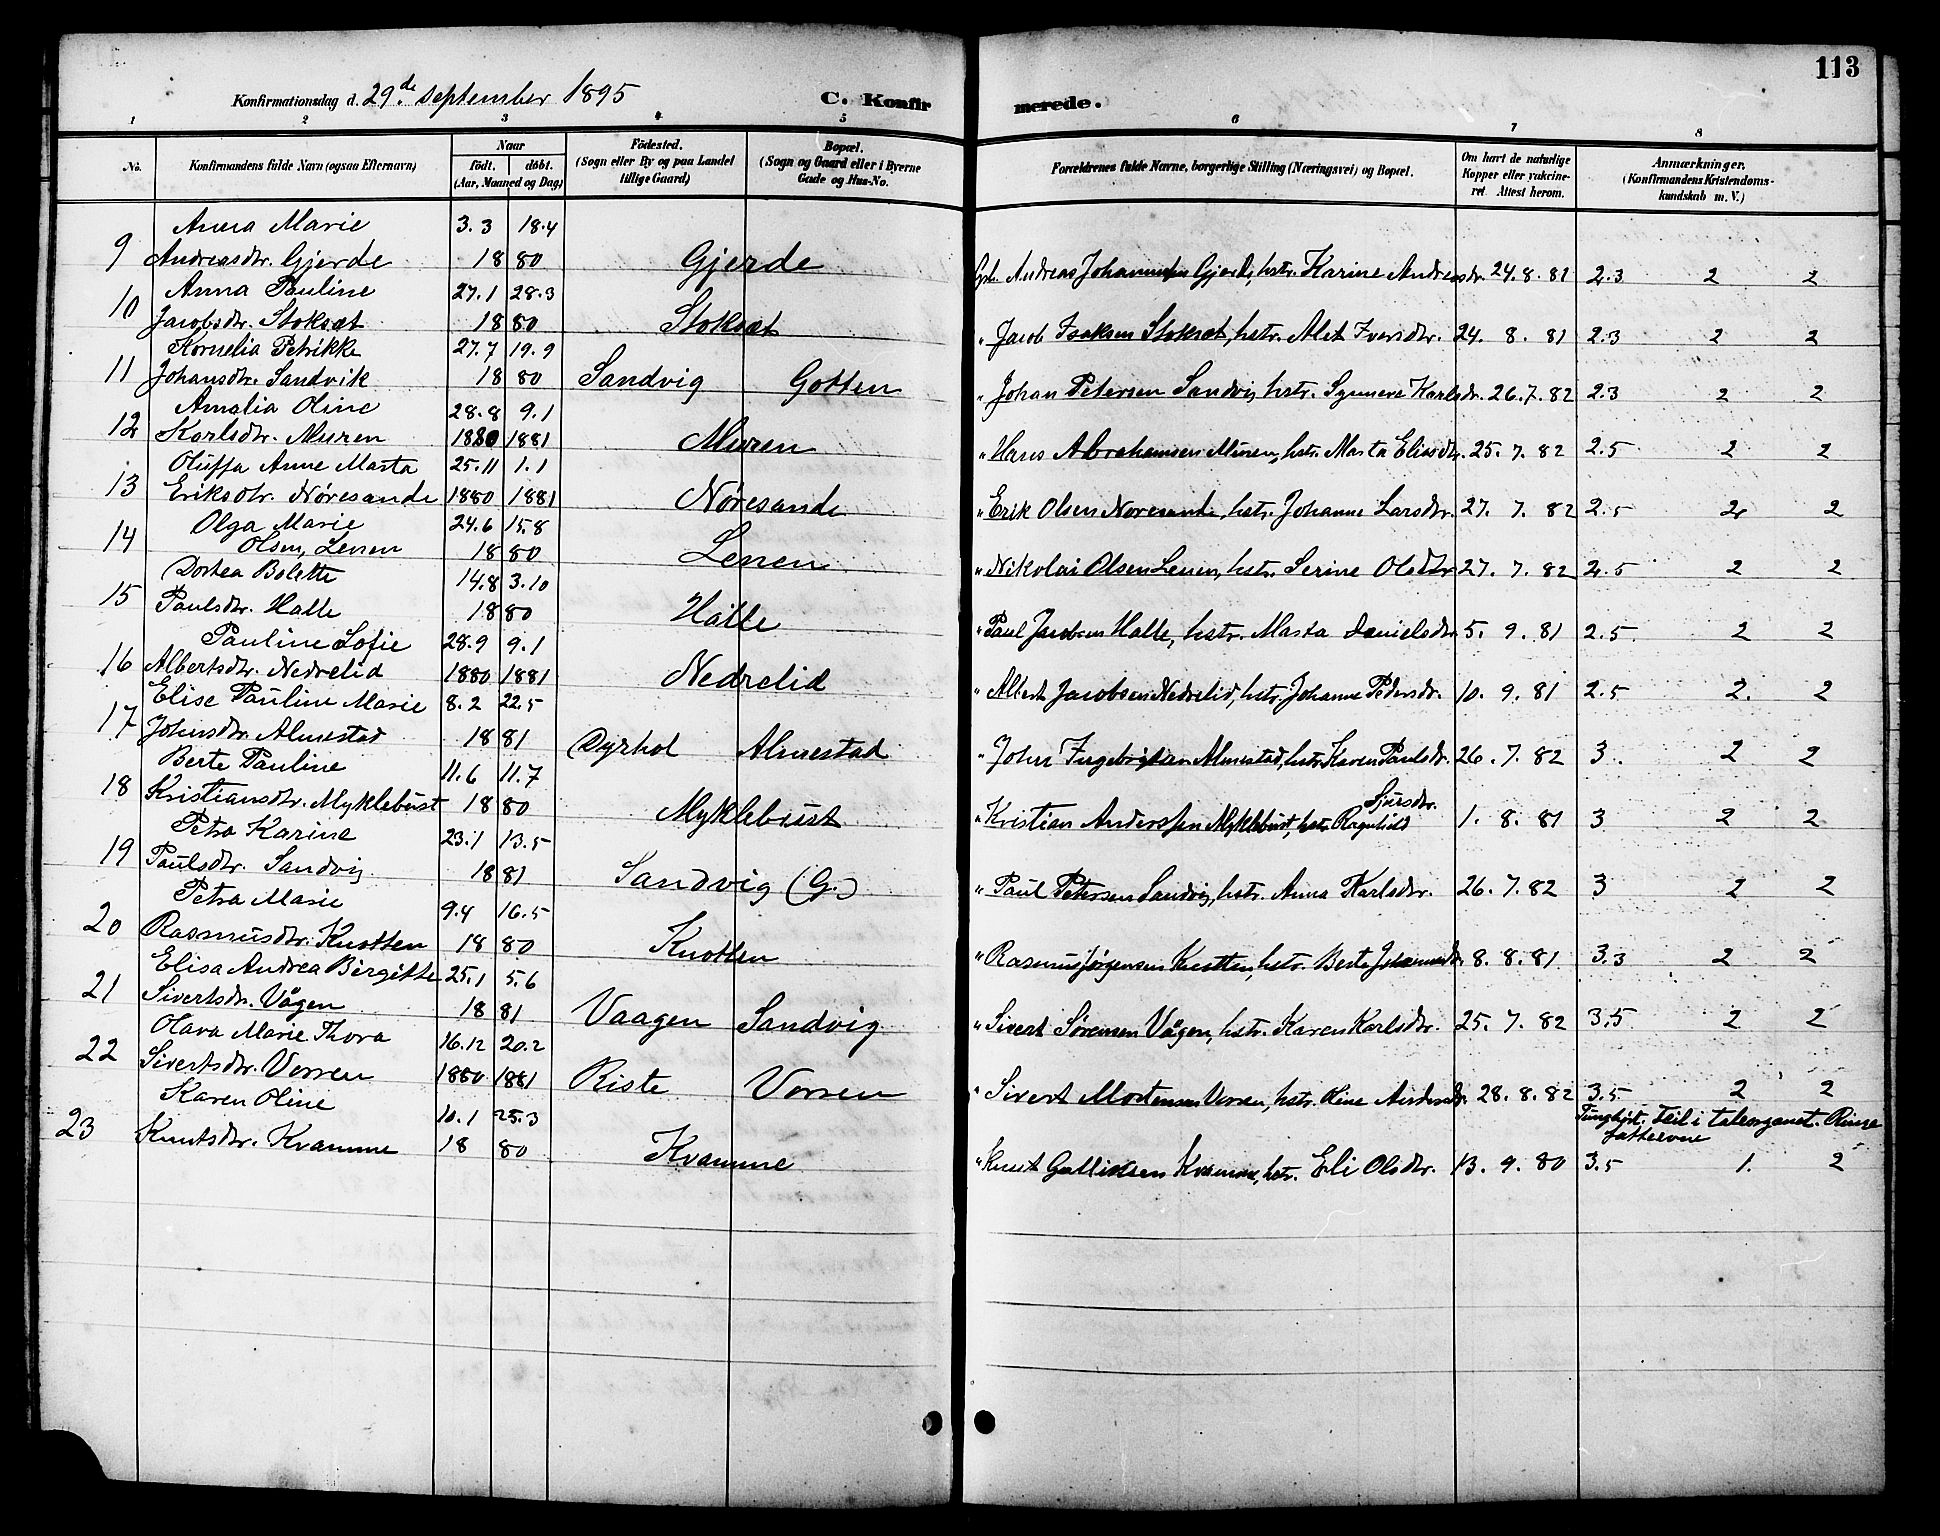 113
Konfirmationsdag d. 29.de September 1895 C. Konfirmerede.
1 2 3 4 5 6 7 8
No. Konfirmandens fulde Navn (ogsaa Efternavn) Naar født. døbt. (Aar, Maaned og Dag) Fødested. (Sogn eller By og paa Landet tillige Gaard) Bopæl. (Sogn og Gaard eller i Byerne Gade og Hus-No. Forældrenes fulde Navne, borgerlige Stilling (Næringsvei) og Bopæl. Om havt de naturlige Kopper eller vakcineret Attest herom. Anmærkninger. (Konfirmandens Kristendomskundskab m. V.)
Anna Marie 3.3 18.4
9 Andreasdtr. Gjerde 1880 Gjerde Gbr. Andreas Johannesen Gjerde, hstr. Karine Andreasdr. 24.8.81 2.3 2 2
Anna Pauline 27.1 28.3
10 Jacobsdtr. Stokset 1880 Stokset " Jacob Isaksen Stokset, hstr. Alet Iversdtr. 24.8.81 2.3 2 2
Kornelia Petrikke 27.7 19.9
11 Johansdtr. Sandvik 1880 Sandvig Gotten " Johan Petersen Sandvig hstr. Synneve Karlsdr. 26.7.82 2.3 2 2
Amalia Oline 28.8 9.1
12 Karlsdtr. Muren 1880 1881 Muren " Hans Abrahamsen Muren, hstr. Marta Eliasdtr. 25.7.82 2.5 2 2
Oluffa Anne Marta 25.11 1.1
13 Eriksdtr. Nøresande 1880 1881 Nøresande " Erik Olsen Nøresande, hstr. Johanne Larsdtr. 27.7.82 2.5 2 2
Olga Marie 24.6 15.8
14 Olsen, Lenen 1880 Lenen " Nikolai Olsen Lenen, hstr. Serine Olsdtr 27.7.82 2.5 2 2
Dortea Bolette 14.8 3.10
15 Paulsdtr. Halle 1880 Halle " Paul Jacobsen Halle, hstr. Marta Danielsdtr 5.9.81 2.5 2 2
Pauline Sofie 28.9 9.1
16 Albertsdtr. Nedrelid 1880 1881 Nedrelid " Albert Jacobsen Nedrelid, hstr. Johanne Pedersdr. 10.9.81 2.5 2. 2
Elise Pauline Marie 8.2 22.5
17 Johnsdtr. Almestad 1881 Dyrhol Almestad " John Ingebrigtsen Almestad, hstr. Karen Paulsdr. 26.7.82 3. 2 2
Berte Pauline 11.6 11.7
18 Kristiansdtr. Myklebust 1880 Myklebust " Kristian Anderssen Myklebust, hstr. Ragnhild Sjursdr. 1.8.81 3 2 2
Petra Karine 23.1 13.5
19 Paulsdtr. Sandvig 1881 Sandvig (G.) " Paul Petersen Sandvig, hstr. Anna Karlsdtr. 26.7.82 3 2 2
Petra Marie 9.4 16.5
20 Rasmusdtr. Knotten 1880 Knotten " Rasmus Jørgensen Knotten, hstr. Berte Johannesdr. 8.8.81 3.3 2 2
Elisa Andrea Birgitte 25.1 5.6
21 Sivertsdr. Vågen 1881 Vaagen Sandvig " Sivert Sørensen Vågen, hstr. Karen Karlsdtr. 25.7.82 3.5 2 2
Olava Marie Thora 16.12 20.2
22 Sivertsdtr. Vorren 1880 1881 Riste Vorren " Sivert Mortensen Vorren, hstr. Oline Andersdr. 28.8.82 3.5 2 2
Karen Oline 10.1 25.3 Tunghørt. Feil i taleorganet. Ringe fatteevne
23 Knutsdtr. Kvamme 1880 Kvamme " Knut Kvamme, hstr. Eli Olsdtr. 13.9.80 3.5 1. 2